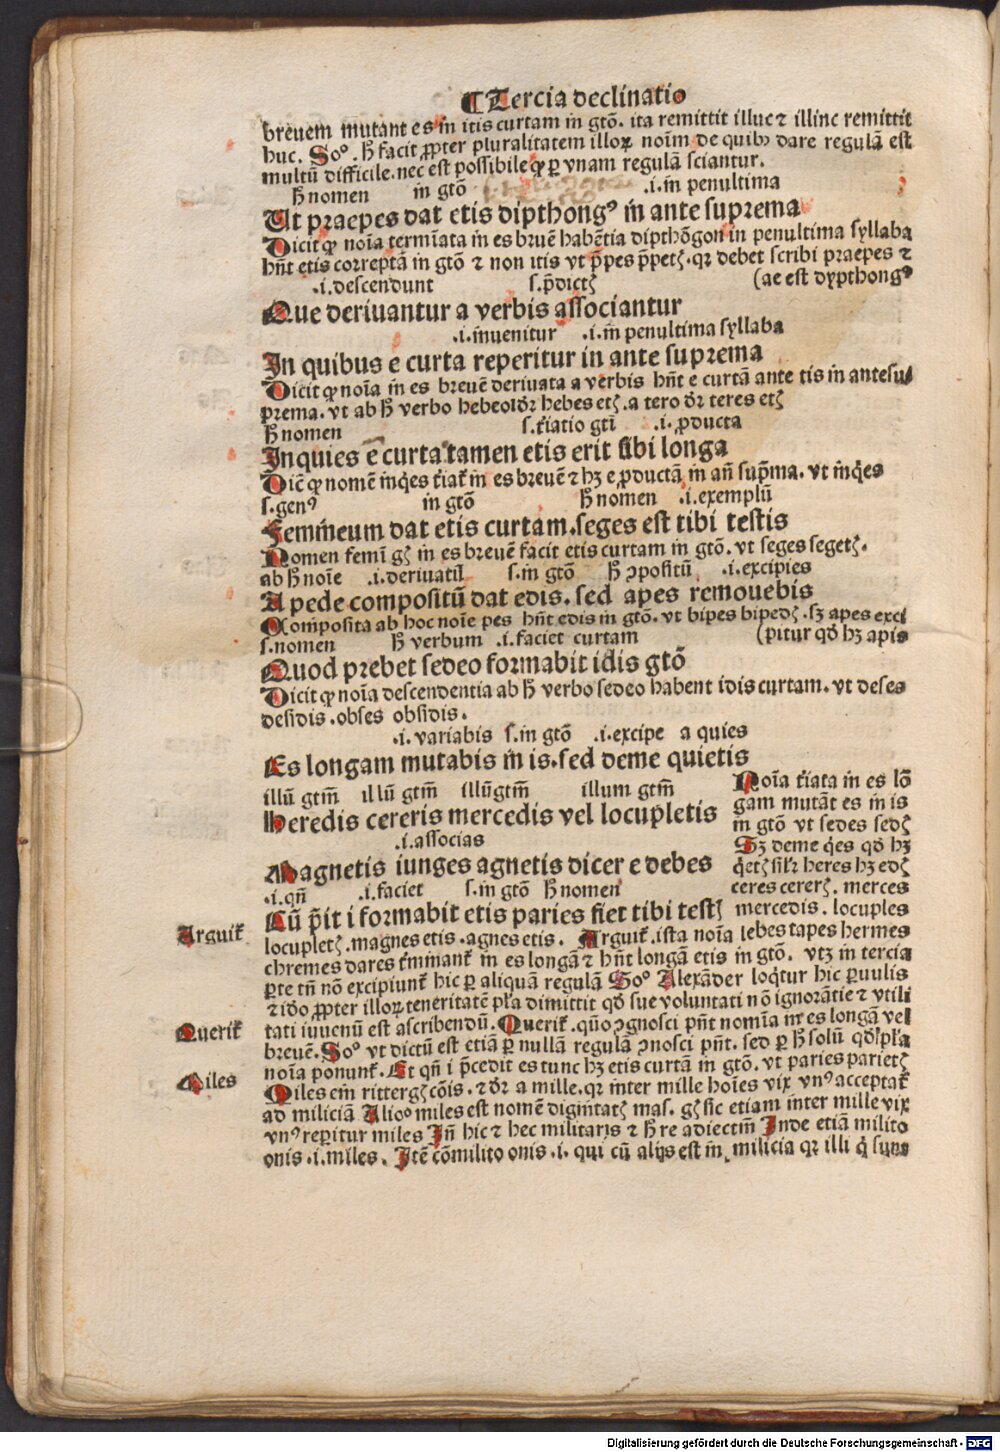 ¶ Tercia declinatio
breuem mutant es in itis curtam in gtō. ita remittit illuc ⁊ illinc remittit
huc. Soº. ħ facit ꝓpter pluralitatem illoꝝ noīm de quibꝰ dare regulā est
multū difficile. nec est possibile ꝙ ꝑ vnam regulā sciantur.
ħ nomen in gtō .i. in penultima
Ut praepes dat etis dipthongꝰ in ante suprema
Dicit ꝙ noīa termīata in es breuē habētia dipthōgon in penultima syllaba
hn̄t etis correptā in gtō ⁊ non itis vt p̄pes p̄petꝭ. qꝛ debet scribi praepes ⁊
.i. descendunt s. p̄dictꝭ (ae est dypthongꝰ
Que deriuantur a verbis associantur
.i. inuenitur .i. in penultima syllaba
In quibus e curta reperitur in ante suprema
Dicit ꝙ noīa in es breuē deriuata a verbis hn̄t e curtā ante tis in antesu/
prema. vt ab ħ verbo hebeo dr̄ hebes etꝭ. a tero dr̄ teres etꝭ
ħ nomen s. t̄iatio gtī .i. ꝓducta
Inquies ē curta tamen etis erit tibi longa
Dic̄ ꝙ nomē inq̄es t̄iat̄ in es breuē ⁊ hꝫ e ꝓductā in an̄ sup̄ma. vt inq̄es
s. genꝰ in gtō ħ nomen .i. exemplū
Femineum dat etis curtam. seges est tibi testis
Nomen femī gꝭ in es breuē facit etis curtam in gtō. vt seges segetꝭ.
ab ħ noīe .i. deriuatū s. in gtō ħ ꝯpositū .i. excipies
A pede compositū dat edis. sed apes remouebis
Composita ab hoc noīe pes hn̄t edis in gtō. vt bipes bipedꝭ. sꝫ apes exci
s. nomen ħ verbum .i. faciet curtam (pitur qđ hꝫ apis
Quod prebet sedeo formabit idis gtō
Dicit ꝙ noīa descendentia ab ħ verbo sedeo habent idis curtam. vt deses
desidis. obses obsidis.
.i. variabis s. in gtō .i. excipe a quies
Es longam mutabis in is. sed deme quietis
illū gtm̄ illū gtm̄ illū gtm̄ illum gtm̄
Heredis cereris mercedis vel locupletis
.i. associas
Magnetis iunges agnetis dicere debes
.i. qn̄ .i. faciet s. in gtō ħ nomen
Cū p̄it i formabit etis paries fiet tibi testꝭ
Noīa t̄iata in es lō
gam mutāt es in is
in gtō vt sedes sedꝭ
Sꝫ deme q̄es qđ hꝫ
q̄etꝭ silꝛ heres hꝫ edꝭ
ceres cererꝭ. merces
mercedis. locuples
Arguit̄
locupletꝭ. magnes etis. agnes etis. Arguit̄. ista noīa lebes tapes hermes
chremes dares t̄minant̄ in es longā ⁊ hn̄t longā etis in gtō. vtꝫ in tercia
ꝑte tn̄ nō excipiunt̄ hic ꝑ aliquam regulā Soº Alexāder loq̄tur hic ꝑuulis
⁊ idō ꝓpter illoꝝ teneritatē pl̄a dimittit qđ sue voluntati nō ignorātie ⁊ vtili
Querit̄
tati iuuenū est ascribendū. Querit̄. quō ꝯgnosci pn̄t nomīa in es longā vel
breuē. Soº vt dictū est etiā ꝑ nullā regulā ꝯnosci pn̄t. sed ꝑ ħ solū qđ pl̄a
noīa ponunt̄. Et qn̄ i p̄cedit es tunc hꝫ etis curtā in gtō. vt paries parietꝭ
Miles
Miles em̄ ritter gꝭ cōis. ⁊ dr̄ a mille. qꝛ inter mille hoīes vix vnꝰ acceptat̄
ad miliciā Alioº miles est nomē dignitatꝭ mas. gꝭ sic etiam inter mille vix
vnꝰ reperitur miles In̄ hic ⁊ hec militaris ⁊ ħ re adiectm̄ Inde etiā milito
onis .i. miles. Itē cōmilito onis .i. qui cū alijs est in milicia qꝛ illi q̄ sunt
Digitalisierung gefördert durch die Deutsche Forschungsgemeinschaft - DFG